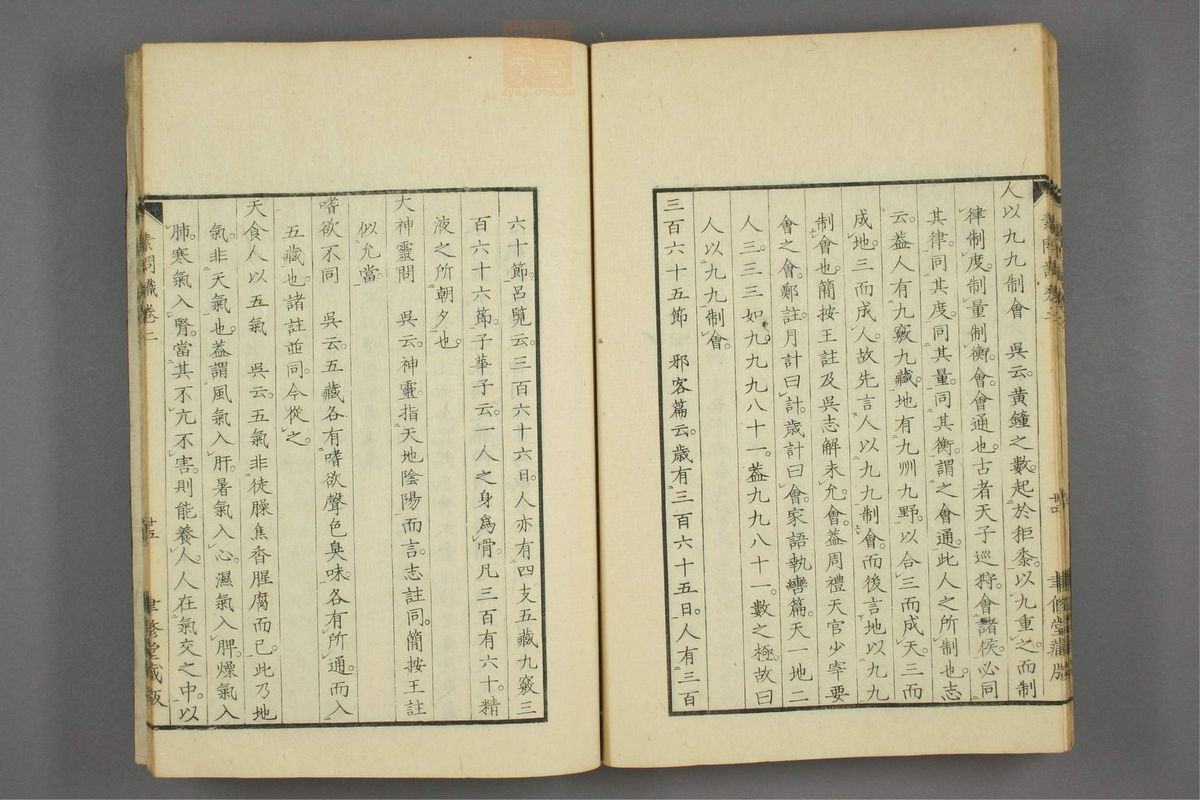 人以九九制會　吳云。黃鐘之數。起於秬黍。以九重之。而制
律制度。制量制衡。會會通也。古者天子巡狩。會諸侯。必同
其律。同其度。同其量。同其衡。謂之會通。此人之所制也。志
云。葢人有九竅九藏。地有九州九野。以合三而成天。三而
成地。三而成人。故先言人以九九制會。而後言地以九九
制會也。簡按王註及吳志解未允。會。葢周禮天官少宰要
會之會。鄭註。月計曰計。歲計曰會。家語執轡篇。天一地二
人三。三三如九。九九八十一。葢九九八十一。數之極。故曰
人以九九制會。
三百六十五節　邪客篇云。歲有三百六十五日。人有三百
六十節。呂覽云。三百六十六日。人亦有四支五藏九竅三
百六十六節。子華子云。一人之身爲骨。凡三百有六十。精
液之所朝夕也。
大神靈問　吳云。神靈。指天地陰陽而言。志註同。簡按王註
似允當。
嗜欲不同　吳云。五藏各有嗜欲。聲色臭味。各有所通。而入
五藏也。諸註並同。今從之。
天食人以五氣　吳云。五氣非徒臊焦香腥腐而已。此乃地
氣。非天氣也。葢謂風氣入肝。暑氣入心。濕氣入脾。燥氣入
肺。寒氣入腎。當其不亢不害。則能養人。人在氣交之中。以
素問識卷二
廿五
聿修堂藏版